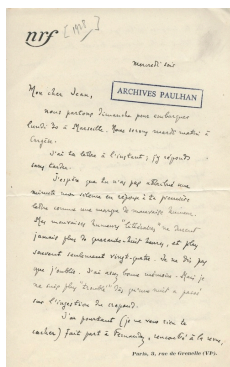 nrf
[1928]
mercredi soir
ARCHIVES PAULHAN
Mon cher Jean,
nous partons dimanche pour embarquer
lundi 30 à Marseille. Nous serons mardi matin à
J'ai ta lettre à l'instant ; j'y réponds
sans tarder.
J'espère que tu n'as pas attribué une
minute mon silence en réponse à ta première
lettre comme une marque de mauvaise humeur.
Mes mauvaises humeurs "littéraires" ne durent
jamais plus de quarante-huit heures, et plus
souvent seulement vingt-quatre. Je ne dis pas
que j'oublie. J'ai assez bonne mémoire. Mais je
ne suis plus "troublé" dès qu'une nuit a passé
sur l'ingestion du crapaud.
J'ai pourtant (je ne veux rien te
cacher) fait part à Fernandez, rencontré à la revue,
Paris, 3, rue de Grenelle (VIᵉ).